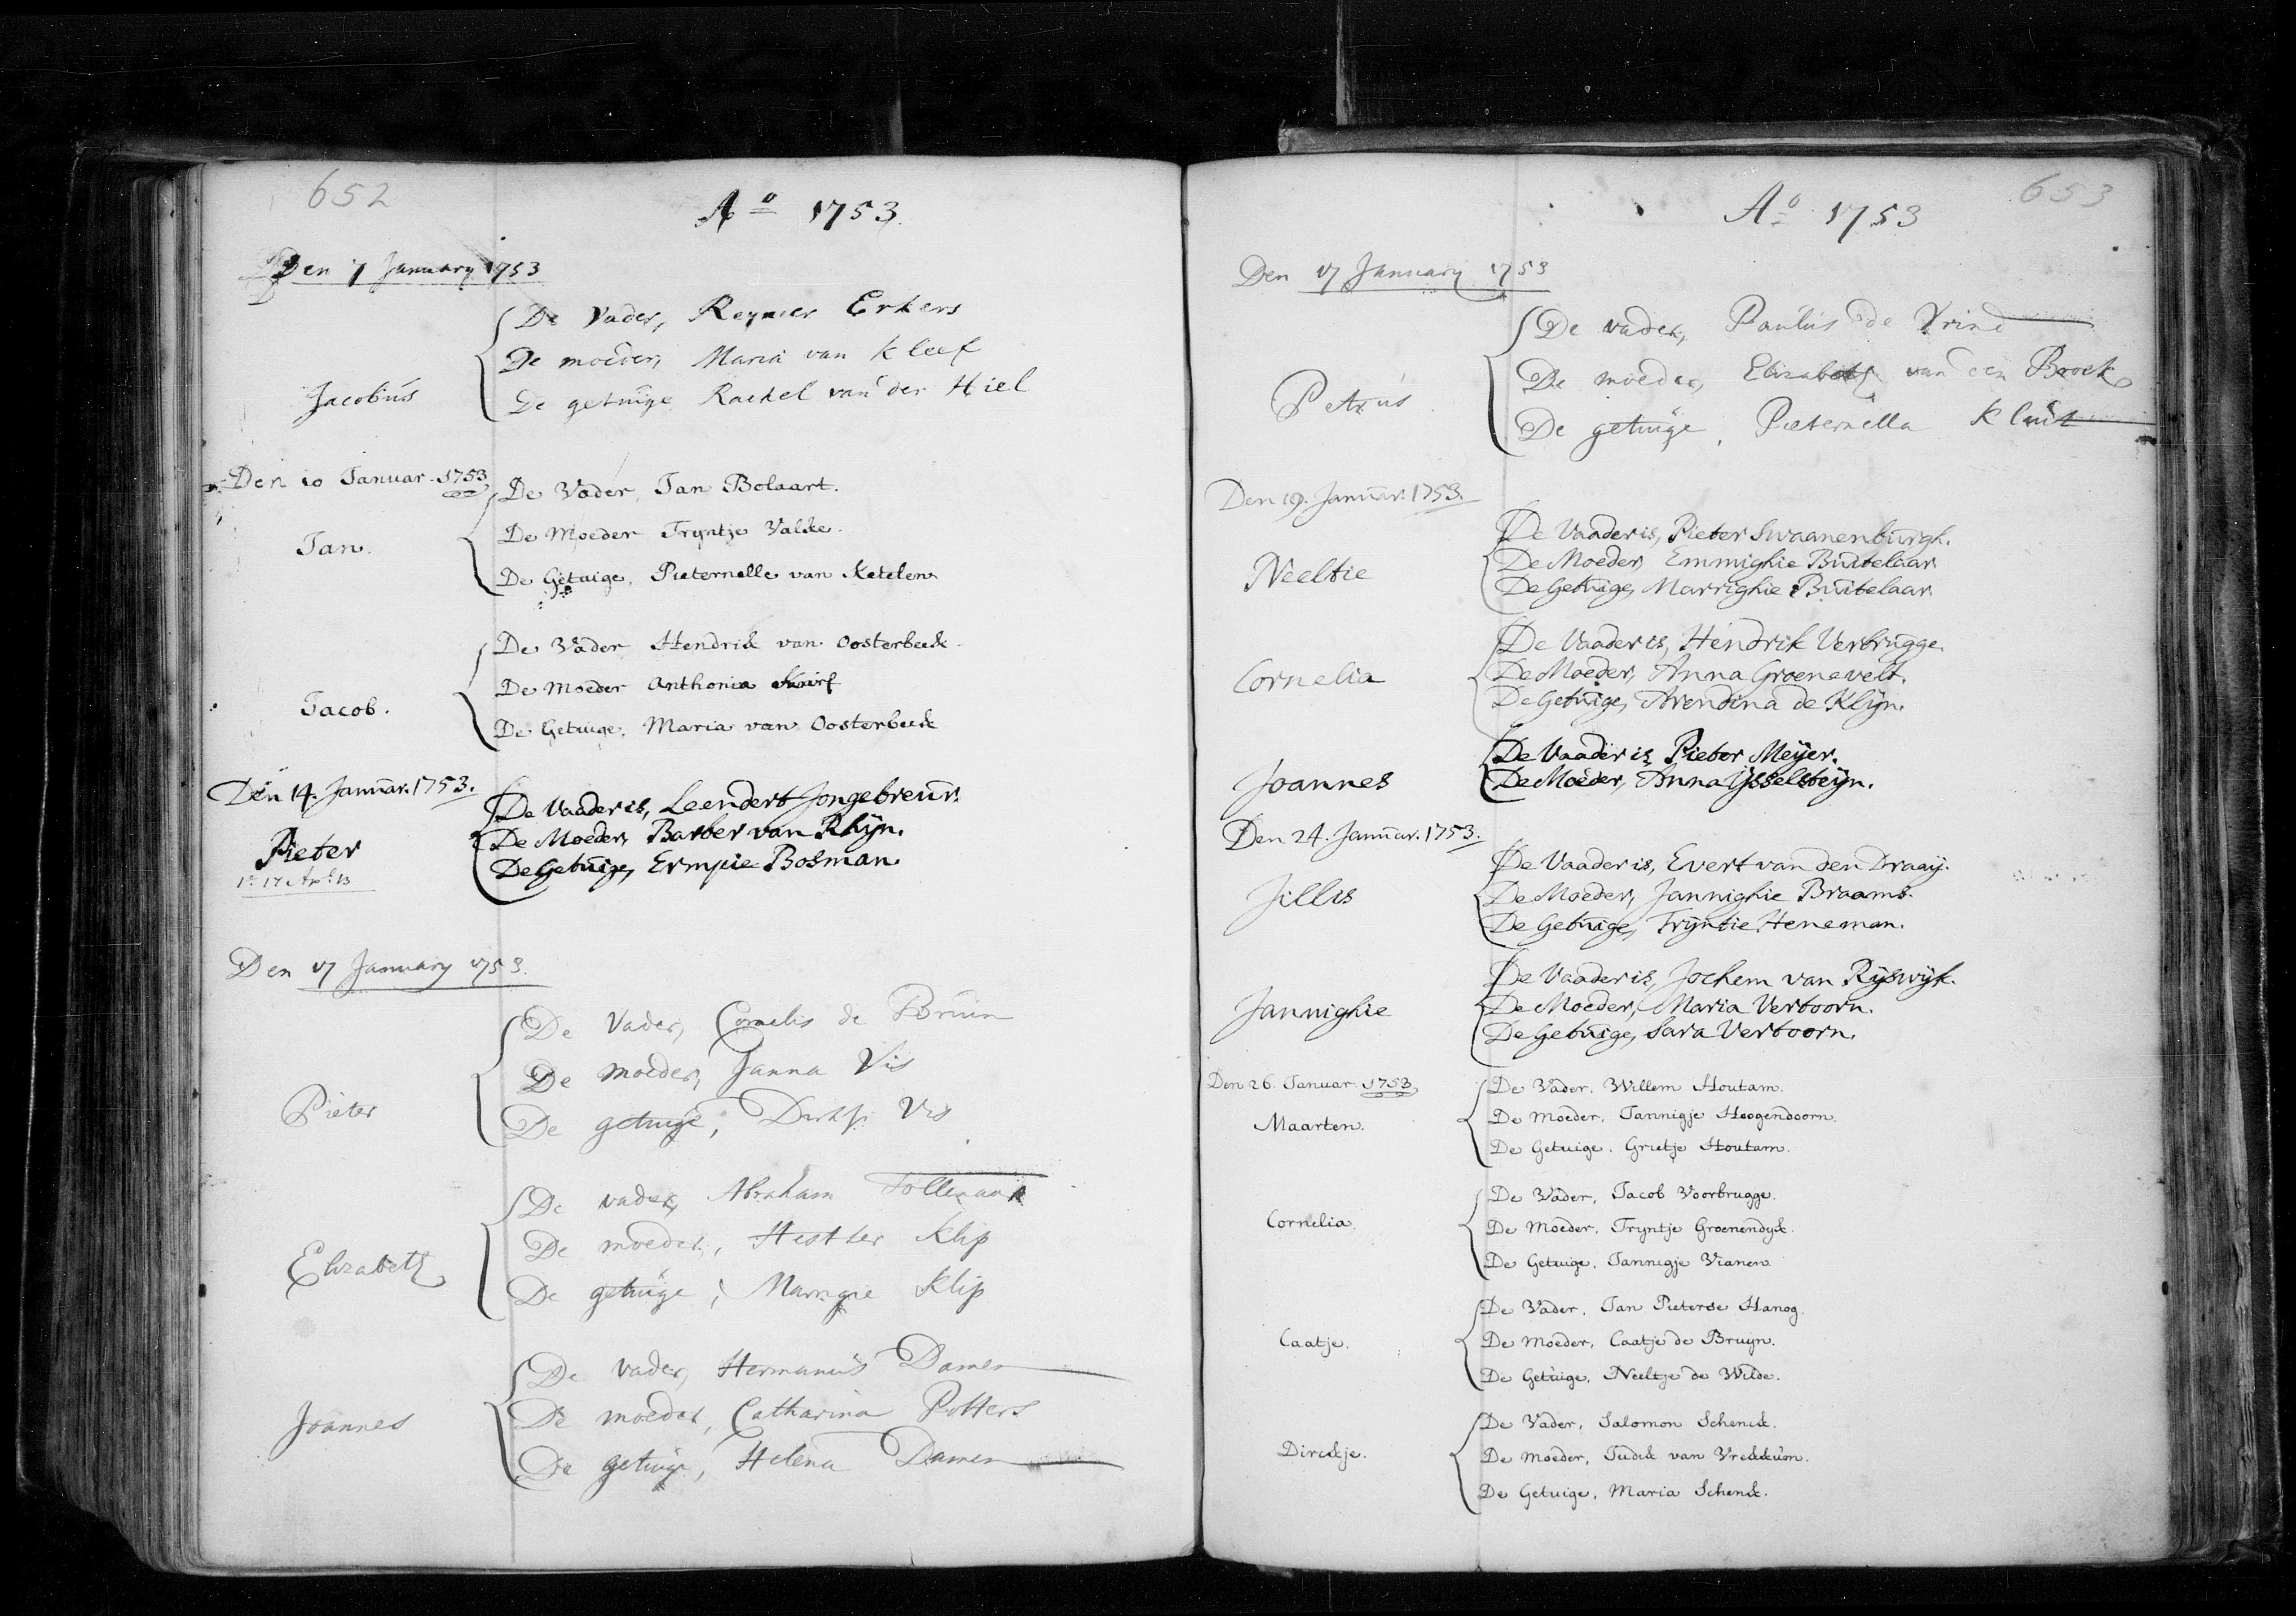 652
Aº 1753.
Den 7 January 1753
Jacobus
De Vader, Reynier Erkers
De moeder, Maria van Kleef
De getuige Rachel van der Hiel
Den 10 Januar. 1753
Jan.
De Vader, Jan Bolaart.
De Moeder Tryntje Valke.
De Getuige, Pieternelle van Ketelen
Jacob.
De Vader Hendrik van Oosterbeek.
De Moeder Anthonia
De Getuige, Maria van Oosterbeek
Den 14. Januar. 1753.
Pieter
De Vaader is, Leendert Jongebreur.
De Moeder, Barber van Rhijn.
De Getuige, Ermpie Bosman.
Den 17 January 1753.
Pieter
De Vader, Cornelis de Bruin
De moeder, Janna Vis
De getuige, Vis
Elizabeth
De vader, Abraham Tollenaar
De moeder, Hester Klip
De getuige, Marrigie Klip
Joannes
De vader, Hermanus Damen
De moeder, Catharina Potters
De getuige, Helena Damen
653
Aº 1753
Den 17 January 1753
Petrus
De vader, Paulus de Vrind
De moeder, Elizabeth van den Broek
De getuige, Pieternella Kluit
Den 19. Januar. 1753.
Neeltie
De Vaader is, Pieter Swaanenburgh.
De Moeder, Emmighie Buitelaar
De Getuige, Marrighie Buitelaar
Cornelia
De Vaader is, Hendrik Verbrugge.
De Moeder, Anna Groenevelt.
De Getuige, Arendina de Klijn.
Joannes
De Vaader is, Pieter Meijer.
De Moeder, Anna IJsselsteijn.
Den 24. Januar. 1753.
Jillis
De Vaader is, Evert van den Draaij.
De Moeder, Jannighie Braams.
De Getuige, Trijntie Heneman.
Jannighie
De Vaader is, Jochem van Rijswijk.
De Moeder, Maria Vertoorn.
De Getuige, Sara Vertoorn.
Den 26. Januar. 1753
Maarten.
De Vader, Willem Houtam.
De Moeder, Jannigje Hoogendoorn.
De Getuige, Grietje Houtam.
Cornelia.
De Vader, Jacob Voorbrugge.
De Moeder, Tryntje Groenendyk.
De Getuige, Jannigje Vianen
Caatje.
De Vader, Jan Pieterse Hanog.
De Moeder, Caatje de Bruyn.
De Getuige, Neeltje de Wilde.
Dirckje.
De Vader, Salomon Schenck.
De Moeder, Judick van Vrekkum.
De Getuige, Maria Schenck.